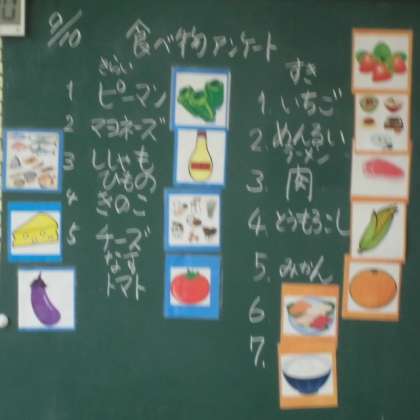 9/10
食べ物アンケート
きらい
1 ピーマン
2 マヨネーズ
3 ししゃも
ひもの
4 きのこ
5 チーズ
なす
トマト
すき
1. いちご
2. めんるい
ラーメン
3. 肉
4. とうもろこし
5. みかん
6
7.